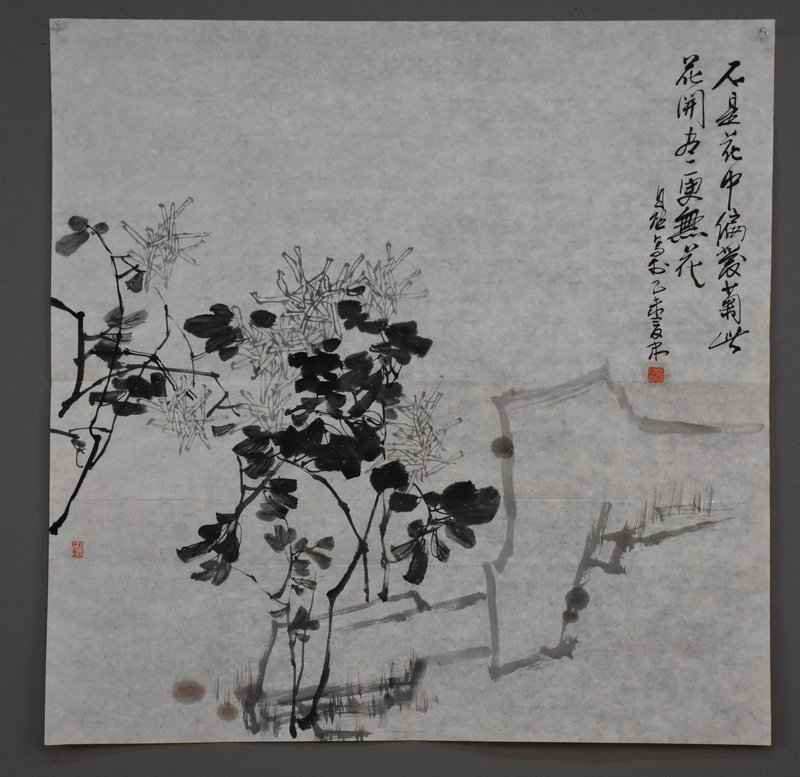 不是花中偏愛菊此
花開尽更無花
乙未夏